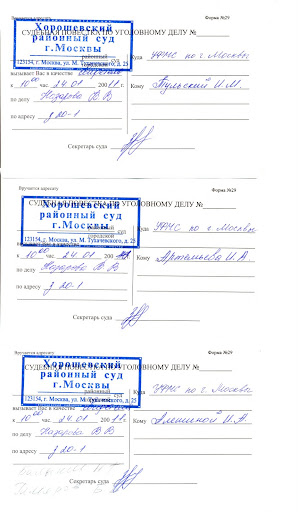 Вручается адресату
Форма №29
Хорошевский
районный суд
г.Москвы
СУДЕБНАЯ ПОВЕСТКА ПО УГОЛОВНОМУ ДЕЛУ №
районный
городской
123154, г. Москва, ул. М. Тухачевского, д. 25
Куда УФМС по г. Москвы
вызывает Вас в качестве
к 10 00 час. 24.01 2001 г.
Кому Тульский И.М.
по делу Назарова В В
по адресу з 20-1
Секретарь суда
Вручается адресату
Форма №29
Хорошевский
районный суд
г.Москвы
СУДЕБНАЯ ПОВЕСТКА ПО УГОЛОВНОМУ ДЕЛУ №
городской
123154, г. Москва, ул. М. Тухачевского, д. 25
Куда УФМС по г. Москвы
к 10 00 час. 24.01 200
Кому Артемьева И.А
по делу Назарова В В
по адресу з 20-1
Секретарь суда
Вручается адресату
Форма №29
Хорошевский
районный суд
г.Москвы
СУДЕБНАЯ ПОВЕСТКА ПО УГОЛОВНОМУ ДЕЛУ №
районный
123154, г. Москва, ул. М. Тухачевского, д. 25
Куда УФМС по г. Москвы
вызывает Вас в качестве
к 10 00 час. 24.01 200
Кому Алешиной И.А.
по делу Назарова В В
по адресу з 20-1
Секретарь суда